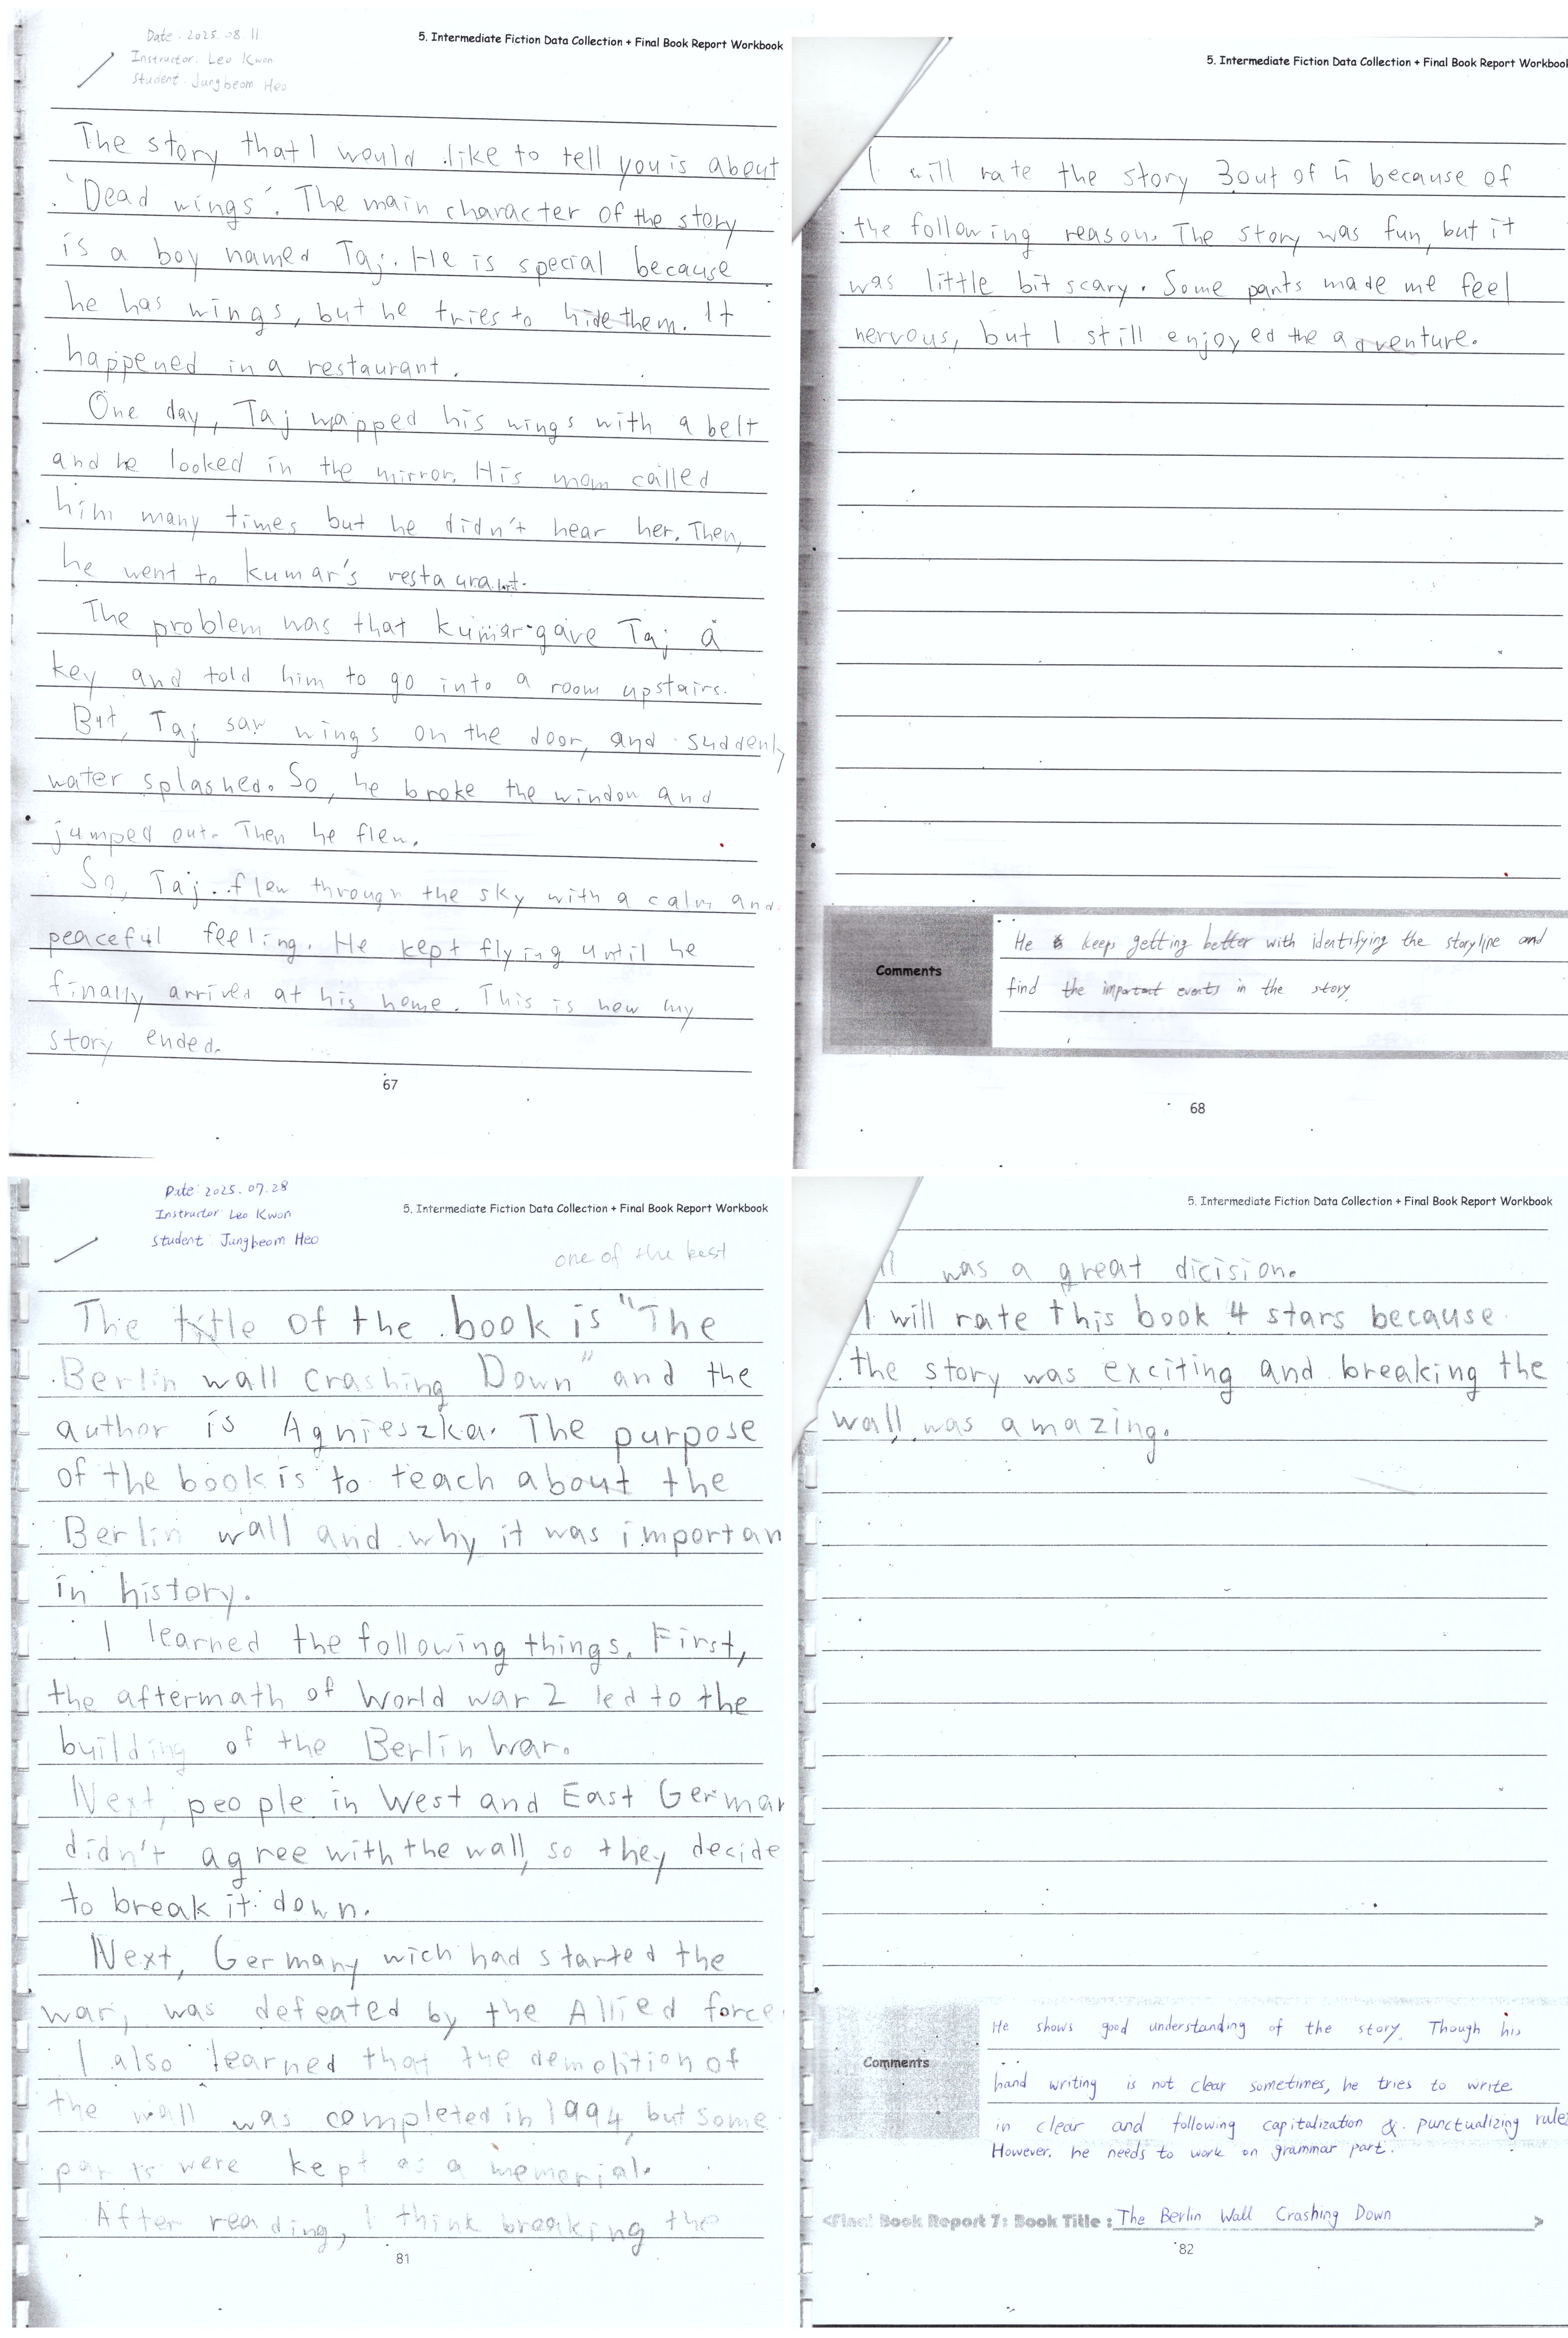 Date: 2025. 08. 11
Instructor: Leo Kwon
Student: Jungbeom Heo
5. Intermediate Fiction Data Collection + Final Book Report Workbook
The story that I would like to tell you is about
'Dead wings'. The main character of the story
is a boy named Taj. He is special because
he has wings, but he tries to hide them. It
happened in a restaurant.
One day, Taj wrapped his wings with a belt
and he looked in the mirror. His mom called
him many times but he didn't hear her. Then,
he went to kumar's restaurant.
The problem was that kumar gave Taj a
key and told him to go into a room upstairs.
But, Taj saw wings on the door, and suddenly
water splashed. So, he broke the window and
jumped out. Then he flew.
So, Taj flew through the sky with a calm and
peaceful feeling. He kept flying until he
finally arrived at his home. This is how my
story ended.
67
5. Intermediate Fiction Data Collection + Final Book Report Workbook
I will rate the story 3 out of 5 because of
the following reason. The story was fun, but it
was little bit scary. Some parts made me feel
nervous, but I still enjoyed the adventure.
Comments
He keeps getting better with identifying the storyline and
find the important events in the story.
68
Date: 2025. 07. 28
Instructor: Leo Kwon
Student: Jungbeom Heo
5. Intermediate Fiction Data Collection + Final Book Report Workbook
one of the best
The title of the book is "The
Berlin wall crashing Down" and the
author is Agnieszka. The purpose
of the book is to teach about the
Berlin wall and why it was importan
in history.
I learned the following things. First,
the aftermath of World war 2 led to the
building of the Berlin War.
Next, people in West and East German
didn't agree with the wall, so they decide
to break it down.
Next, Germany wich had started the
war, was defeated by the Allied force
I also learned that the demolition of
the wall was completed in 1994, but some
parts were kept as a memorial.
After reading, I think breaking the
81
5. Intermediate Fiction Data Collection + Final Book Report Workbook
ll was a great dicision.
I will rate this book 4 stars because
the story was exciting and breaking the
wall was amazing.
Comments
He shows good understanding of the story. Though his
hand writing is not clear sometimes, he tries to write
in clear and following capitalization & punctualizing rule
However, he needs to work on grammar part.
<Final Book Report 7: Book Title : The Berlin Wall Crashing Down >
82